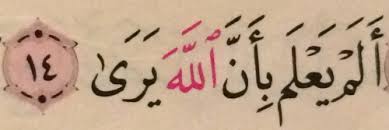 أَلَمْ يَعْلَم بِأَنَّ ٱللَّهَ يَرَىٰ ١٤